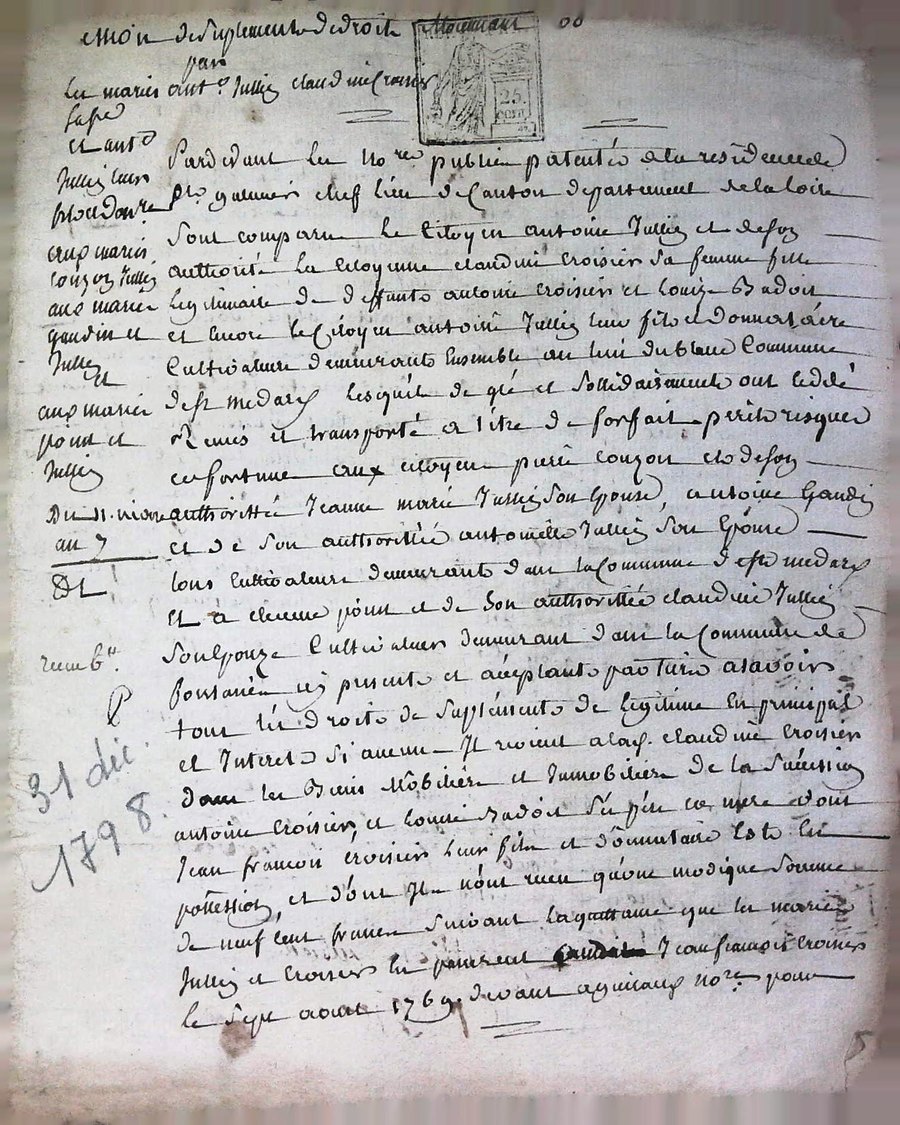 de suplements de droits
par
les mariés antᵉ Jullien claudine Croisier
25.
CENT.
et antᵉ
Jullien leur
fils et donʳᵉ
aux mariés
couzon Jullien
aux mariés
gaudin et
Jullien
et
aux mariés
point et
Jullien
Du 11. nivose
an 7
31 déc.
1798.
Pardevant les noʳᵉˢ publics patentés à la residence de
galmier chef lieu de Canton departement de la loire
sont comparu le Citoyen antoine Jullien et de son
authorité la Citoyenne claudine Croisier sa femme fille
legitimaire de deffunts antoine Croisier et Louize Badoit
et encore le Citoyen antoine Jullien leur fils et donnataire
Cultivateurs demeurants Ensemble au lieu du blanc Commune
de st medard lesquels de gré et sollidairement ont cedé
remis et transporté a titre de forfait perils risques
et fortune aux citoyens pierre couzon et de son
authorité Jeanne marie Jullien son Epouse, antoine Gaudin
et de son authorité antoinette Jullien son Epouse
tous Cultivateurs demeurant dans la Commune de st medard
Et a etienne point et de son authorité claudine Jullien
son Epouze Cultivateurs demeurant dans la Commune de
fontanès icy presents et acceptants partures a savoir
tous les droits de suppléments de legitime En principal
et Interets si aucun Il revient a lad. claudine Croisier
dans les Biens Mobiliers et Immobiliers de la Sucession
antoine Croisier, et Louise Badoit ses père et mere dont
Jean françois Croisier leur fils et donnataire Est En
possession, et dont Ils n'ont reçu qu'une modique somme
de neuf cent francs suivant la quittance que les mariés
Jullien et Croisier En passerent Jean françois Croisier
le sept aout 1769. devant noʳᵉ pour